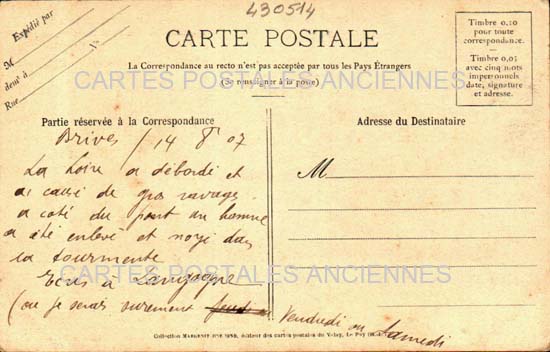 430514
Expédié par
M
demt à
No
Rue
CARTE POSTALE
La Correspondance au recto n'est pas acceptée par tous les Pays Étrangers
(Se renseigner à la poste)
Timbre 0,10
pour toute
correspondance.
Timbre 0,05
avec cinq mots
impersonnels
date, signature
et adresse.
CARTES POSTALES ANCIENNES
Partie réservée à la Correspondance
Adresse du Destinataire
M
Brives / 14 8 07
La Loire a débordé et
a causé de gros ravages
a coté du pont un homme
a été enlevé et noyé dans
la tourmente
Ecris a Langogne
(ou je serais surement Vendredi ou Samedi
CARTES POSTALES ANCIENNES
Collection MARGERIT-BRÉMOND, éditeur des cartes postales du Velay, Le Puy